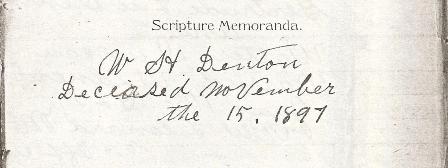 Scripture Memoranda.
W H Denton
Deceiased november
the 15, 1897